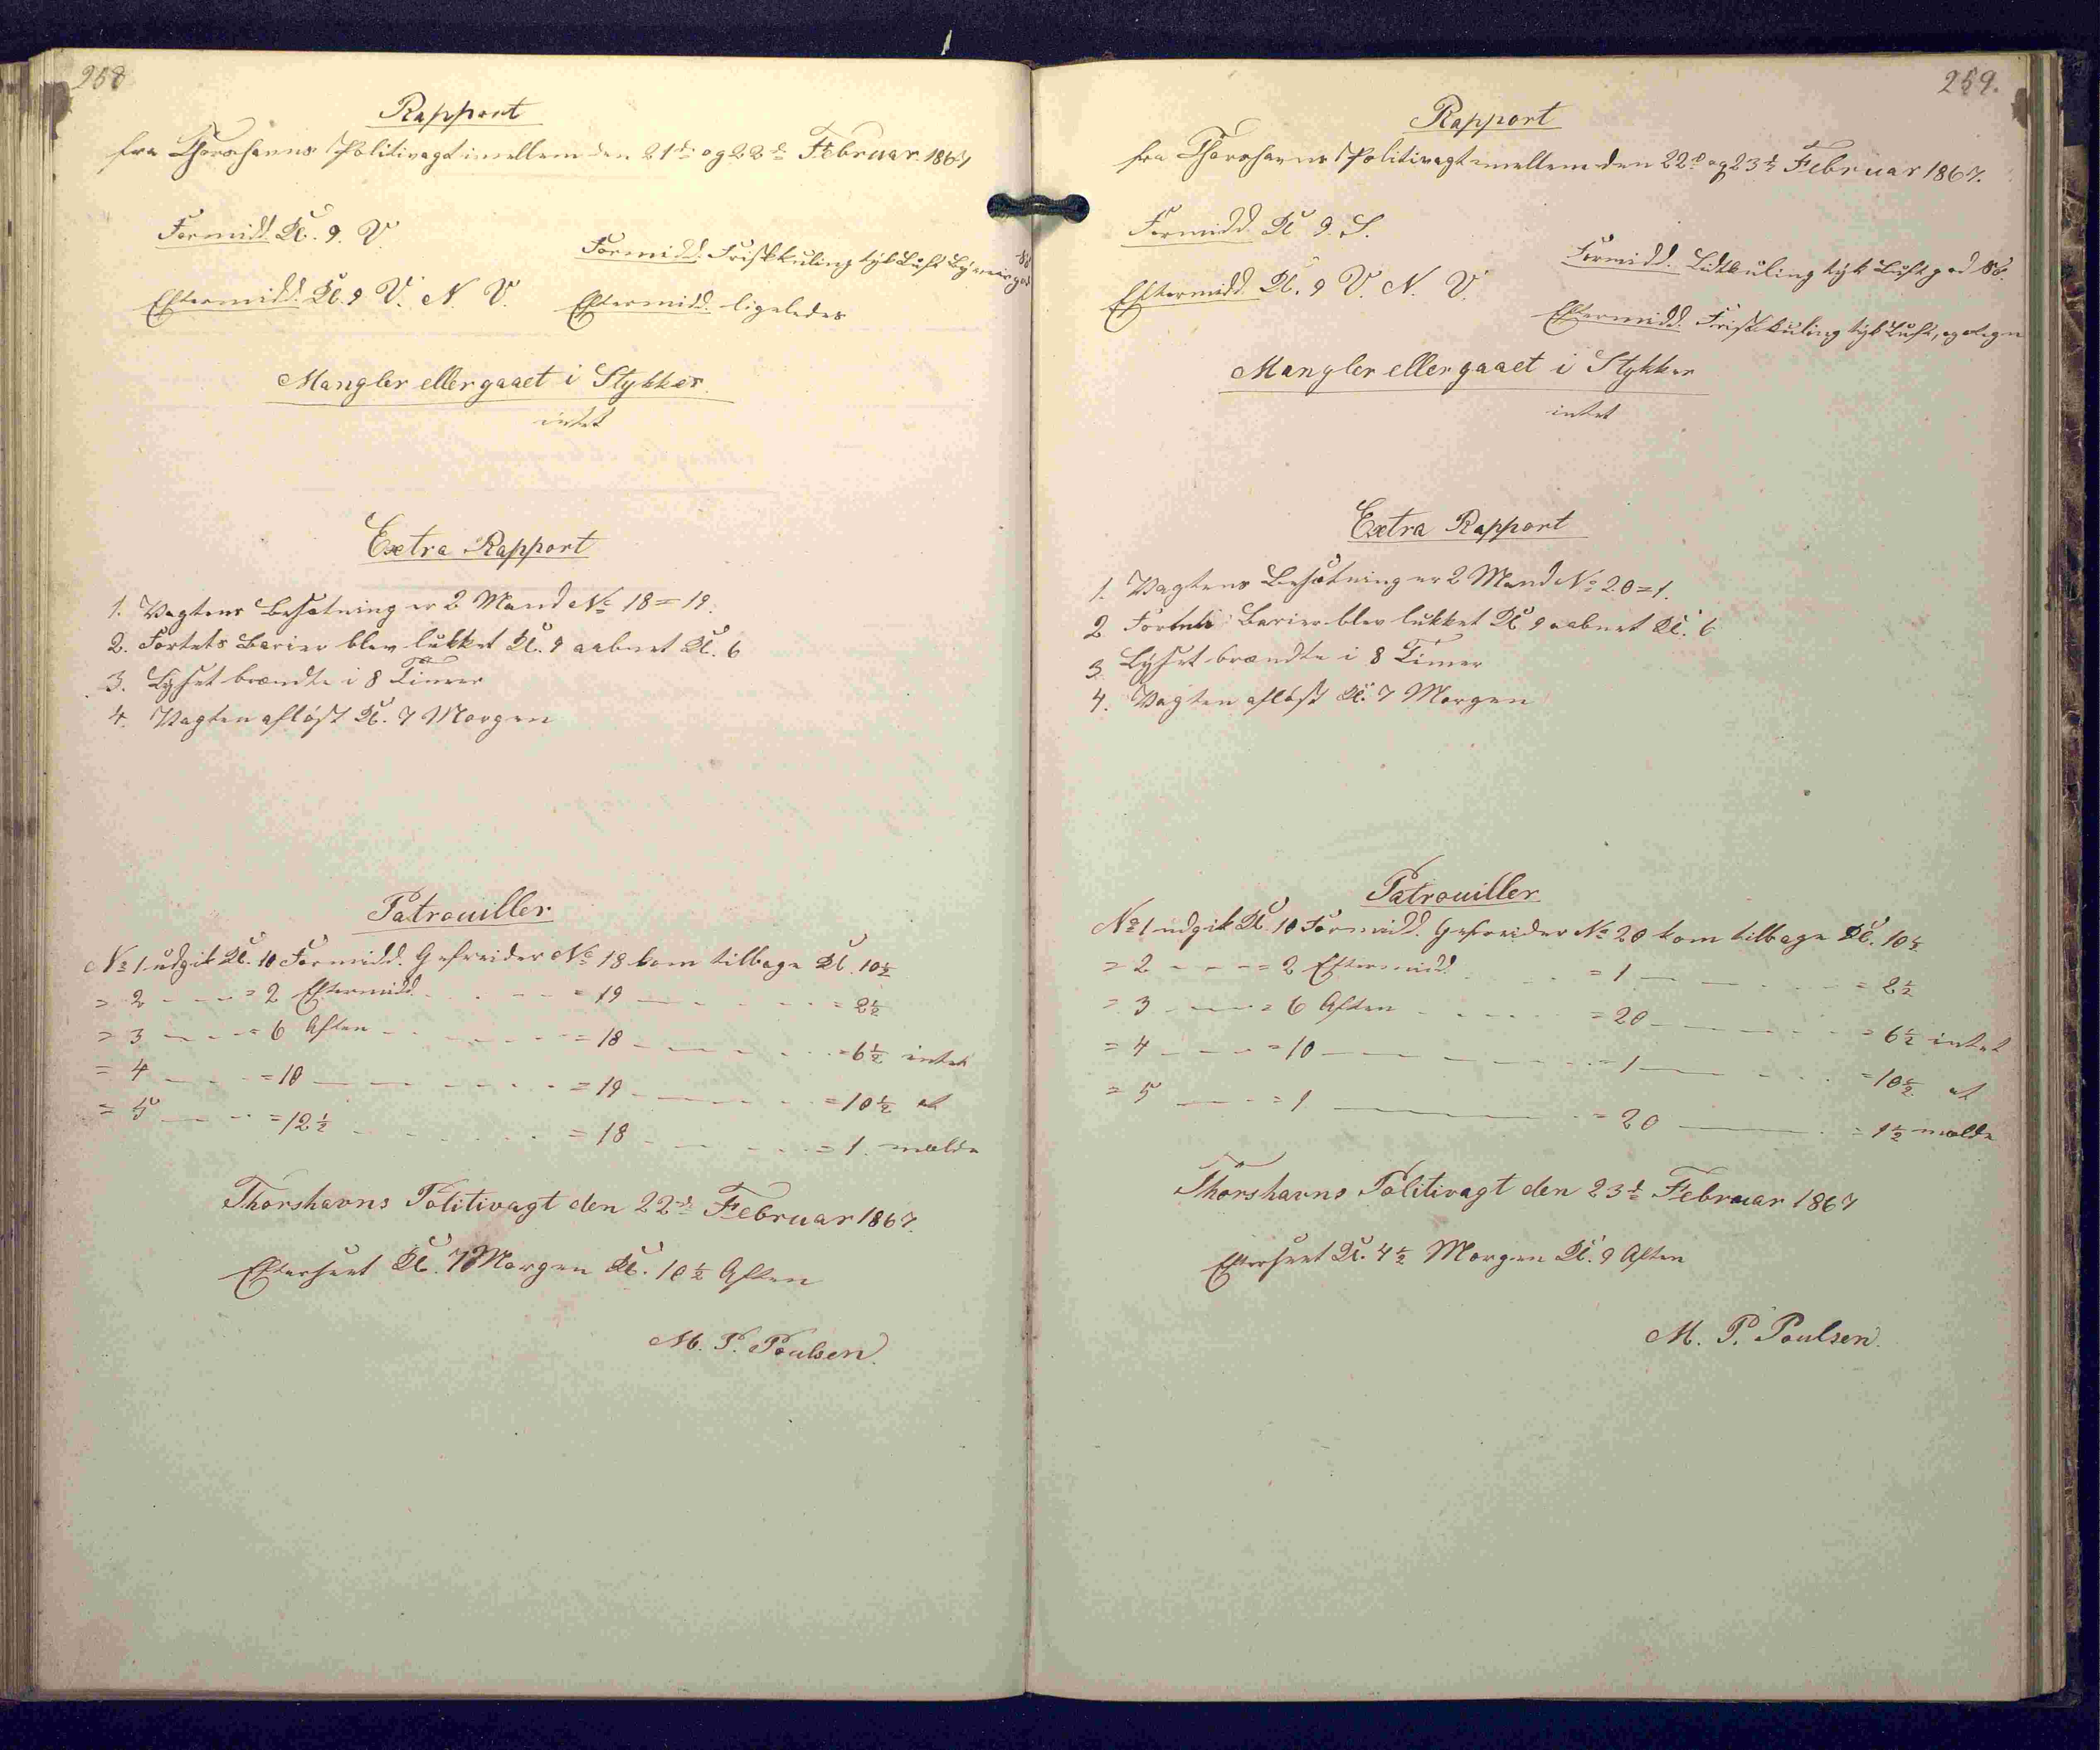 258
Rapport
fra Thorshavns Politivagt imellem den 21de og 22de Februar 1867
Formidd. Kl. 9. V.
Formidd. Frisk kuling tyk Luft
Eftermidd. Kl. 9 V. N. V.
Eftermidd. ligeledes
Mangler eller gaaet i Stykker.
intet
Extra Rapport
1. Vagtens Besætning er 2 Mand No 18 = 19.
2. Fortets Barier blev lukket Kl. 9 aabnet Kl. 6
3. Lyset brændte i 8 Timer
4. Vagten afløst Kl. 7 Morgen
Patrouiller
No 1 udgik Kl. 10 Formidd. Gefreider No 18 kom tilbage Kl. 10½
= 2 - - - = 2 Eftermidd. - - - = 19 - - - = 2½
= 3 - - - = 6 Aften - - - = 18 - - - = 6½ intet
= 4 - - - = 10 - - - = 19 - - - = 10½ at
= 5 - - - = 12½ - - - = 18 - - - = 1. melde
Thorshavns Politivagt den 22de Februar 1867.
Efterseet Kl. 7 Morgen Kl. 10½ Aften
M. P. Poulsen.
259.
Rapport
fra Thorshavns Politivagt imellem den 22de og 23de Februar 1867.
Formidd. Kl 9. S.
Formidd. Lidt kuling tyk Luft god
Eftermidd. Kl. 9 V. N. V.
Eftermidd. Frisk kuling tyk Luft, og regn
Mangler eller gaaet i Stykker
intet
Extra Rapport
1. Vagtens Besætning er 2 Mand No 20 = 1.
2. Fortets Barier blev lukket Kl 9 aabnet Kl. 6
3. Lyset brændte i 8 Timer
4. Vagten afløst Kl. 7 Morgen
Patrouiller
No 1 udgik Kl. 10 Formidd. Gefreider No 20 kom tilbage Kl. 10½
= 2 - - - = 2 Eftermidd. - - - = 1 - - - = 2½
= 3 - - - = 6 Aften - - - = 20 - - - = 6½ intet
= 4 - - - = 10 - - - = 1 - - - = 10½ at
= 5 - - - = 1 - - - = 20 - - - = 1½ melde
Thorshavns Politivagt den 23de Februar 1867
Efterseet Kl. 4½ Morgen Kl. 9 Aften
M. P. Poulsen.